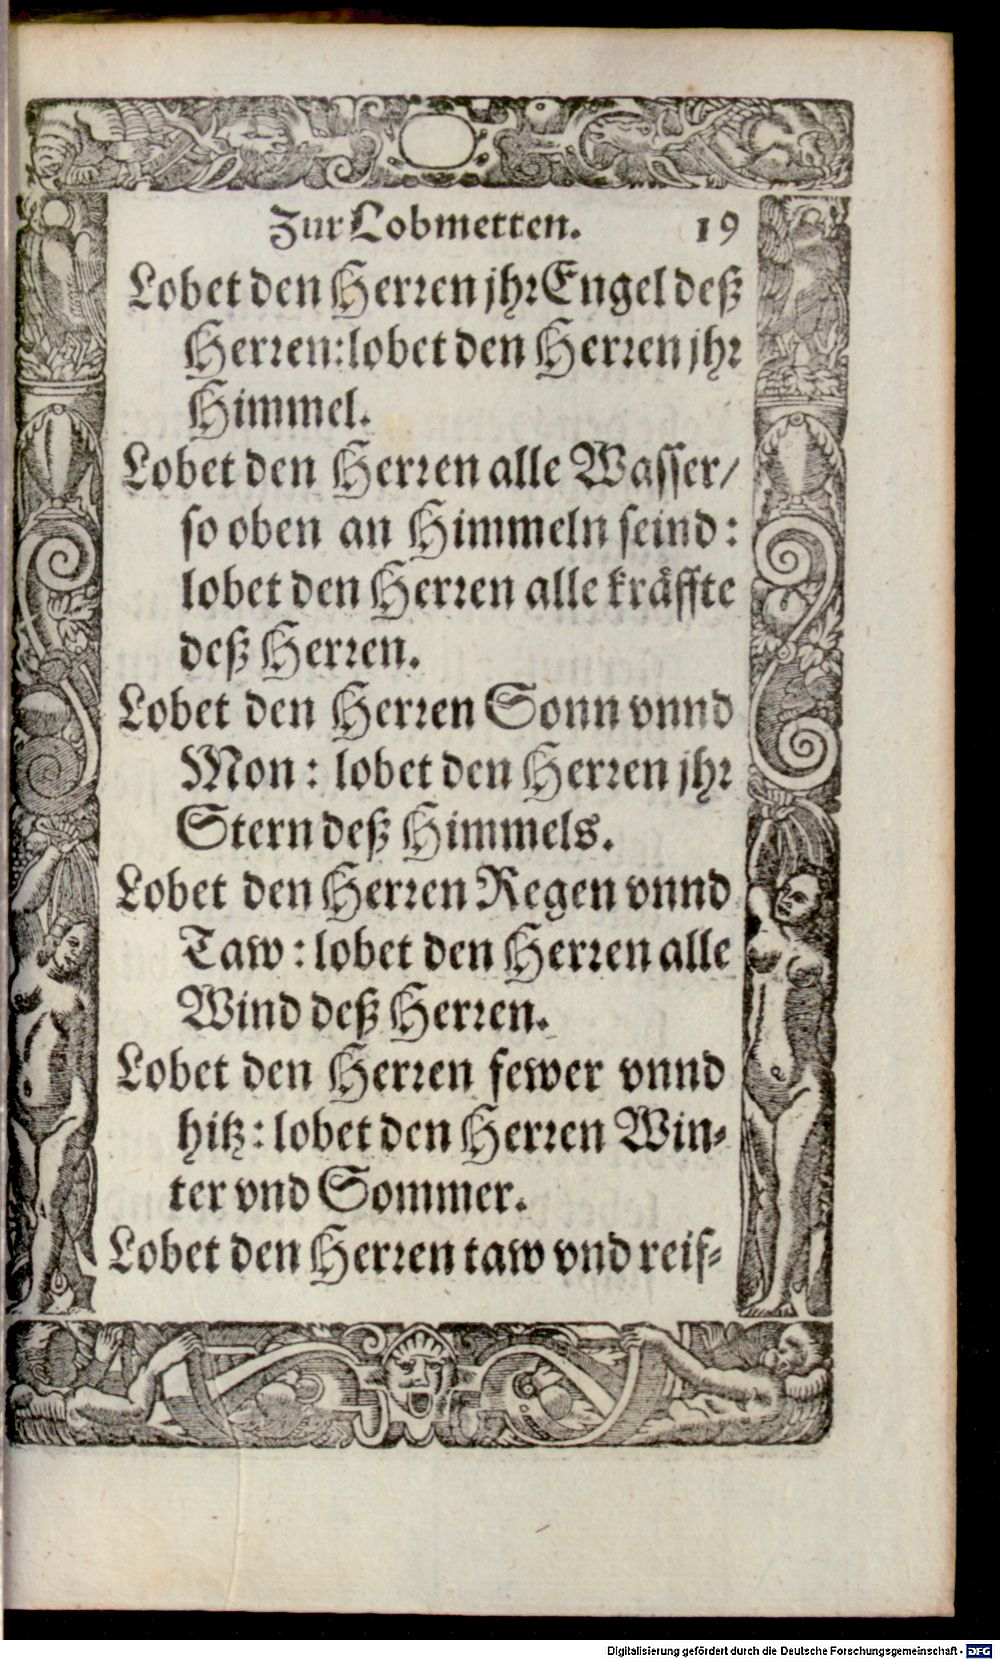 Zur Lobmetten. 19
Lobet den Herꝛen jhꝛ Engel deß
Herꝛen: lobet den Herꝛen jhꝛ
Himmel.
Lobet den Herꝛen alle Wasser/
so oben an Himmeln seind:
lobet den Herꝛen alle kräffte
deß Herꝛen.
Lobet den Herꝛen Sonn vnnd
Mon: lobet den Herꝛen jhꝛ
Stern deß Himmels.
Lobet den Herꝛen Regen vnnd
Taw: lobet den Herꝛen alle
Wind deß Herꝛen.
Lobet den Herꝛen fewer vnnd
hitz: lobet den Herꝛen Win⸗
ter vnd Sommer.
Lobet den Herꝛen taw vnd reif⸗
Digitalisierung gefördert durch die Deutsche Forschungsgemeinschaft - DFG